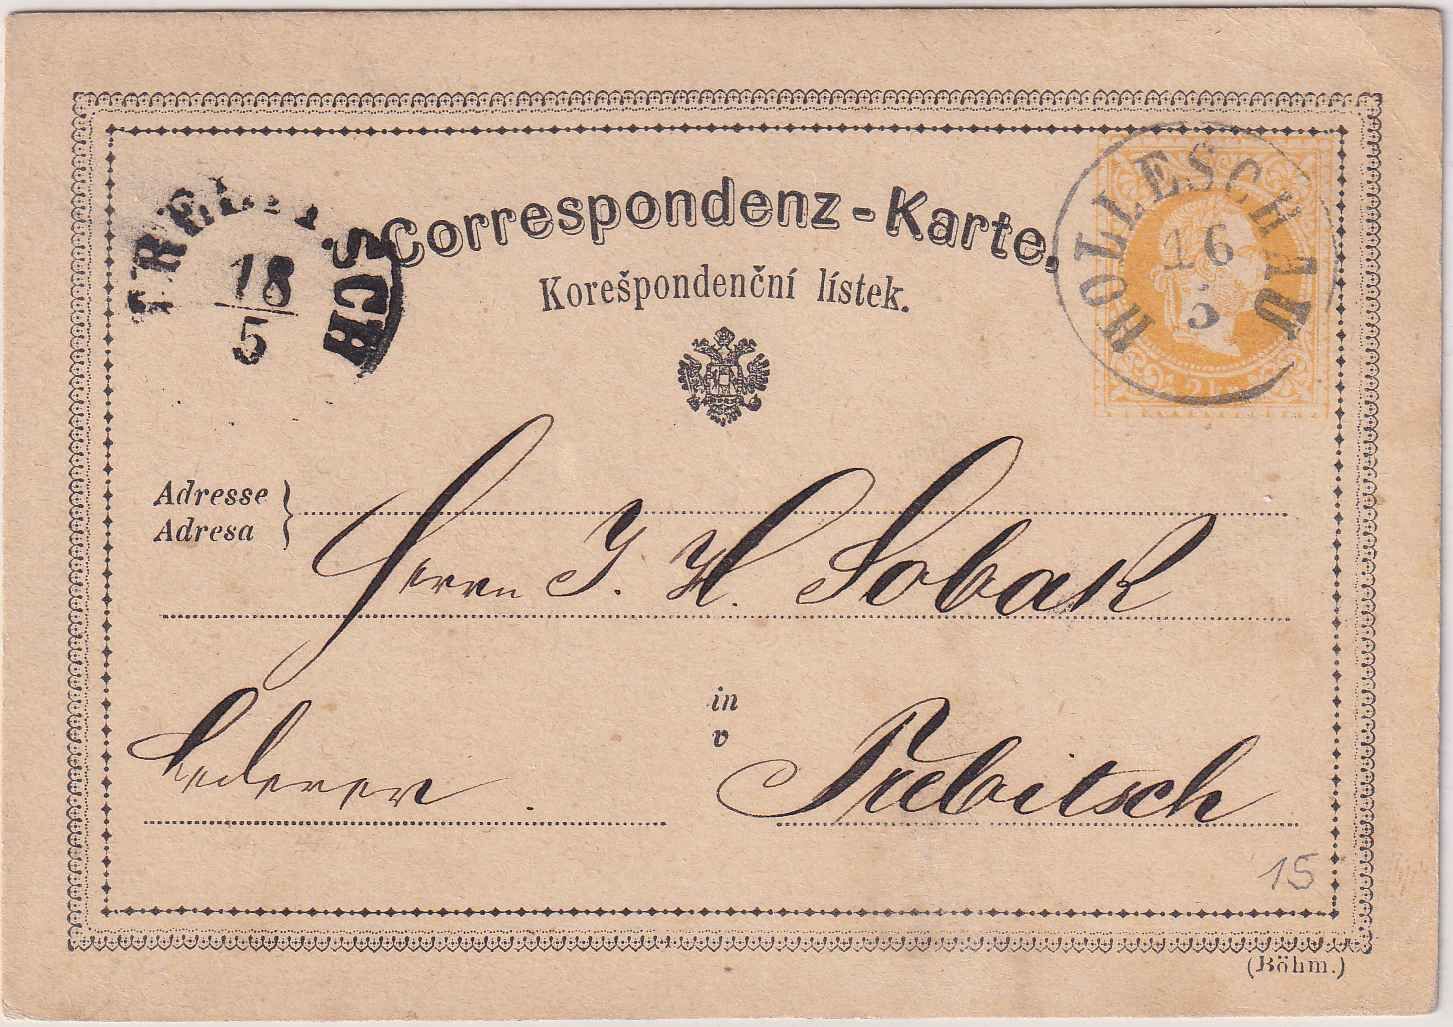 Correspondenz-Karte.
Korešpondenční lístek.
HOLLESCHAU
16
5
TREBITSCH
18
5
Adresse
Adresa
Herrn J. H. Sobak
Lederer
in
v
Trebitsch
15
(Böhm.)